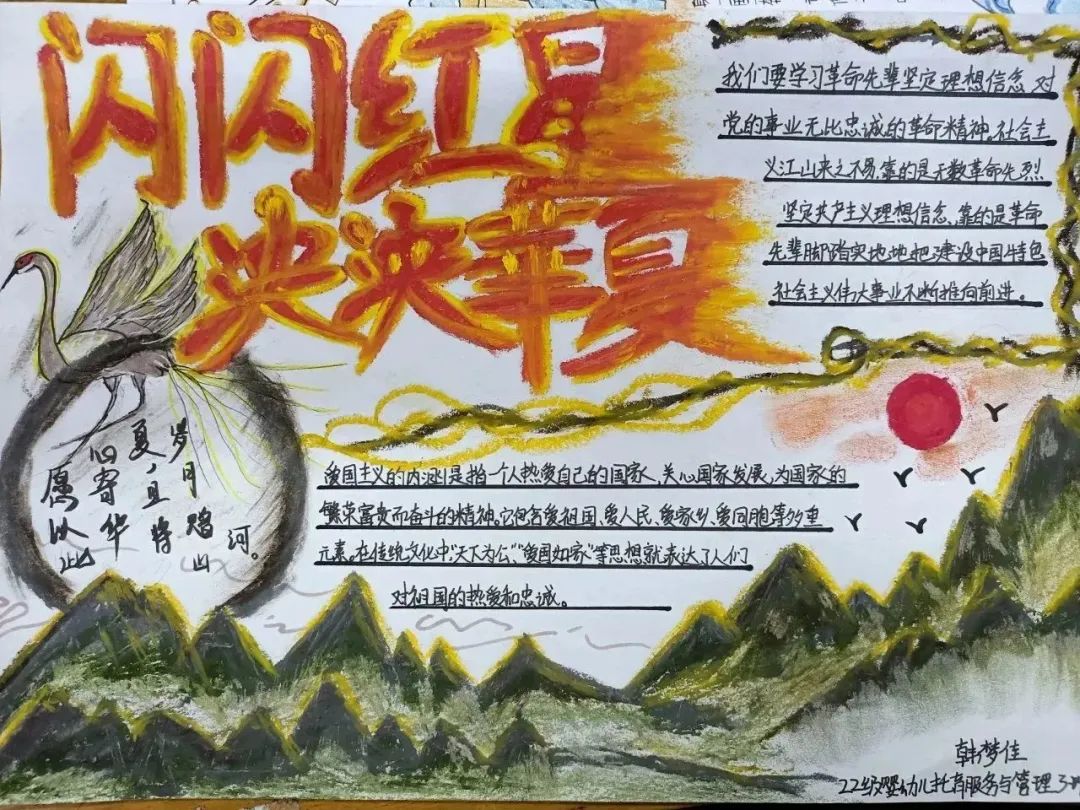 闪闪红星
泱泱華夏
我们要学习革命先辈坚定理想信念,对
党的事业无比忠诚的革命精神,社会主
义江山来之不易,靠的是无数革命先烈
坚定共产主义理想信念,靠的是革命
先辈脚踏实地地把建设中国特色
社会主义伟大事业不断推向前进。
愿以此
心寄华
夏,且将
岁月赠山
河。
爱国主义的内涵是指一个人热爱自己的国家、关心国家发展,为国家的
繁荣富贵而奋斗的精神。它包含爱祖国、爱人民、爱家乡、爱同胞等多重
元素,在传统文化中“天下为公”、“爱国如家”等思想就表达了人们
对祖国的热爱和忠诚。
韩梦佳
22级婴幼儿托育服务与管理3